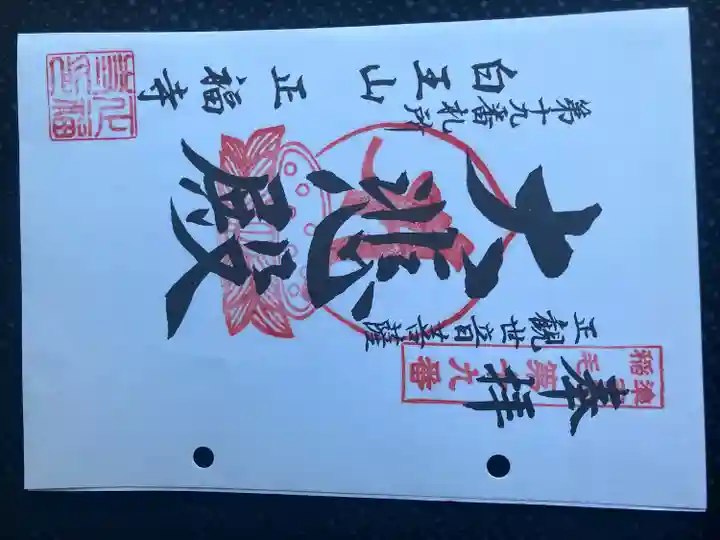 奉拝
稲毛
第十九番
正観世音菩薩
大悲殿
第十九番札所
白王山 正福寺